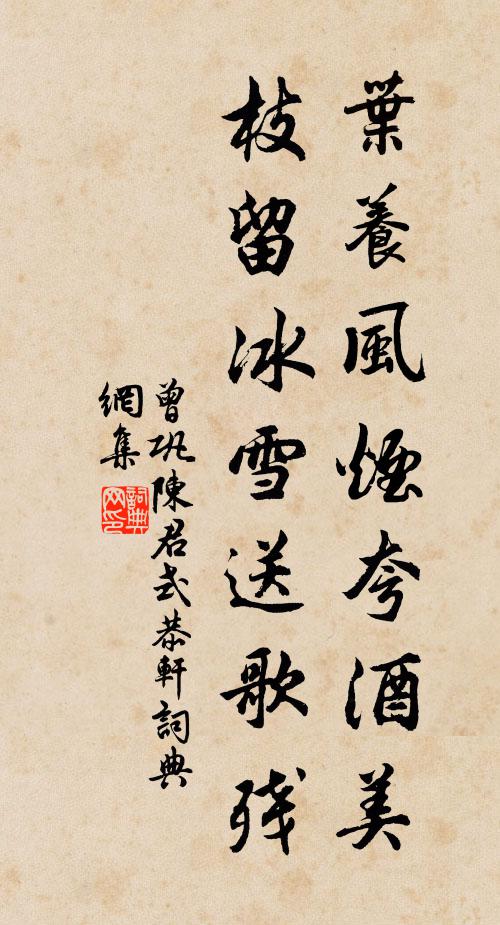 葉養風煙夸酒美
枝留冰雪送歌残
曾巩陳君式恭軒詞典
網集
詞典网印